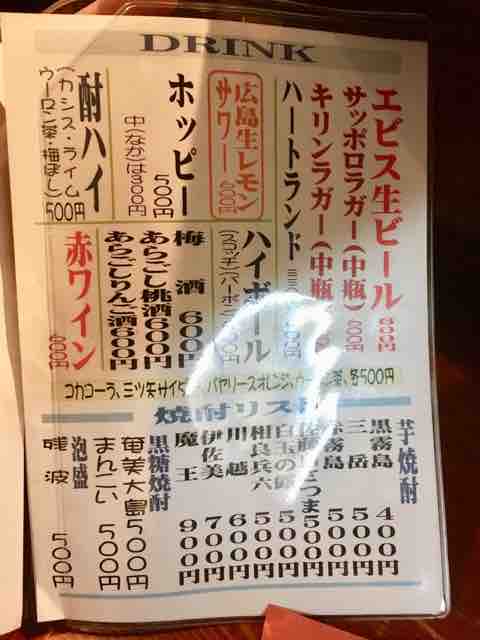 DRINK
エビス生ビール 600円
サッポロラガー(中瓶)600円
キリンラガー(中瓶)
ハートランド
広島生レモン
サワー 600円
ホッピー 500円
中(なか)は300円
酎ハイ
(カシス・ライム
ウーロン茶・梅ぼし)
500円
ハイボール
梅酒 600円
あらごし桃酒600円
あらごしりんご酒600円
赤ワイン 600円
コカコーラ、三ツ矢サイダー、バヤリースオレンジ、茶、各500円
焼酎リスト
芋焼酎
黒霧島 400円
三岳 500円
霧島 500円
500円
白玉の露 500円
相良兵六 500円
川越 600円
伊佐美 700円
魔王 900円
黒糖焼酎
奄美大島 500円
まんこい 500円
泡盛
残波 500円